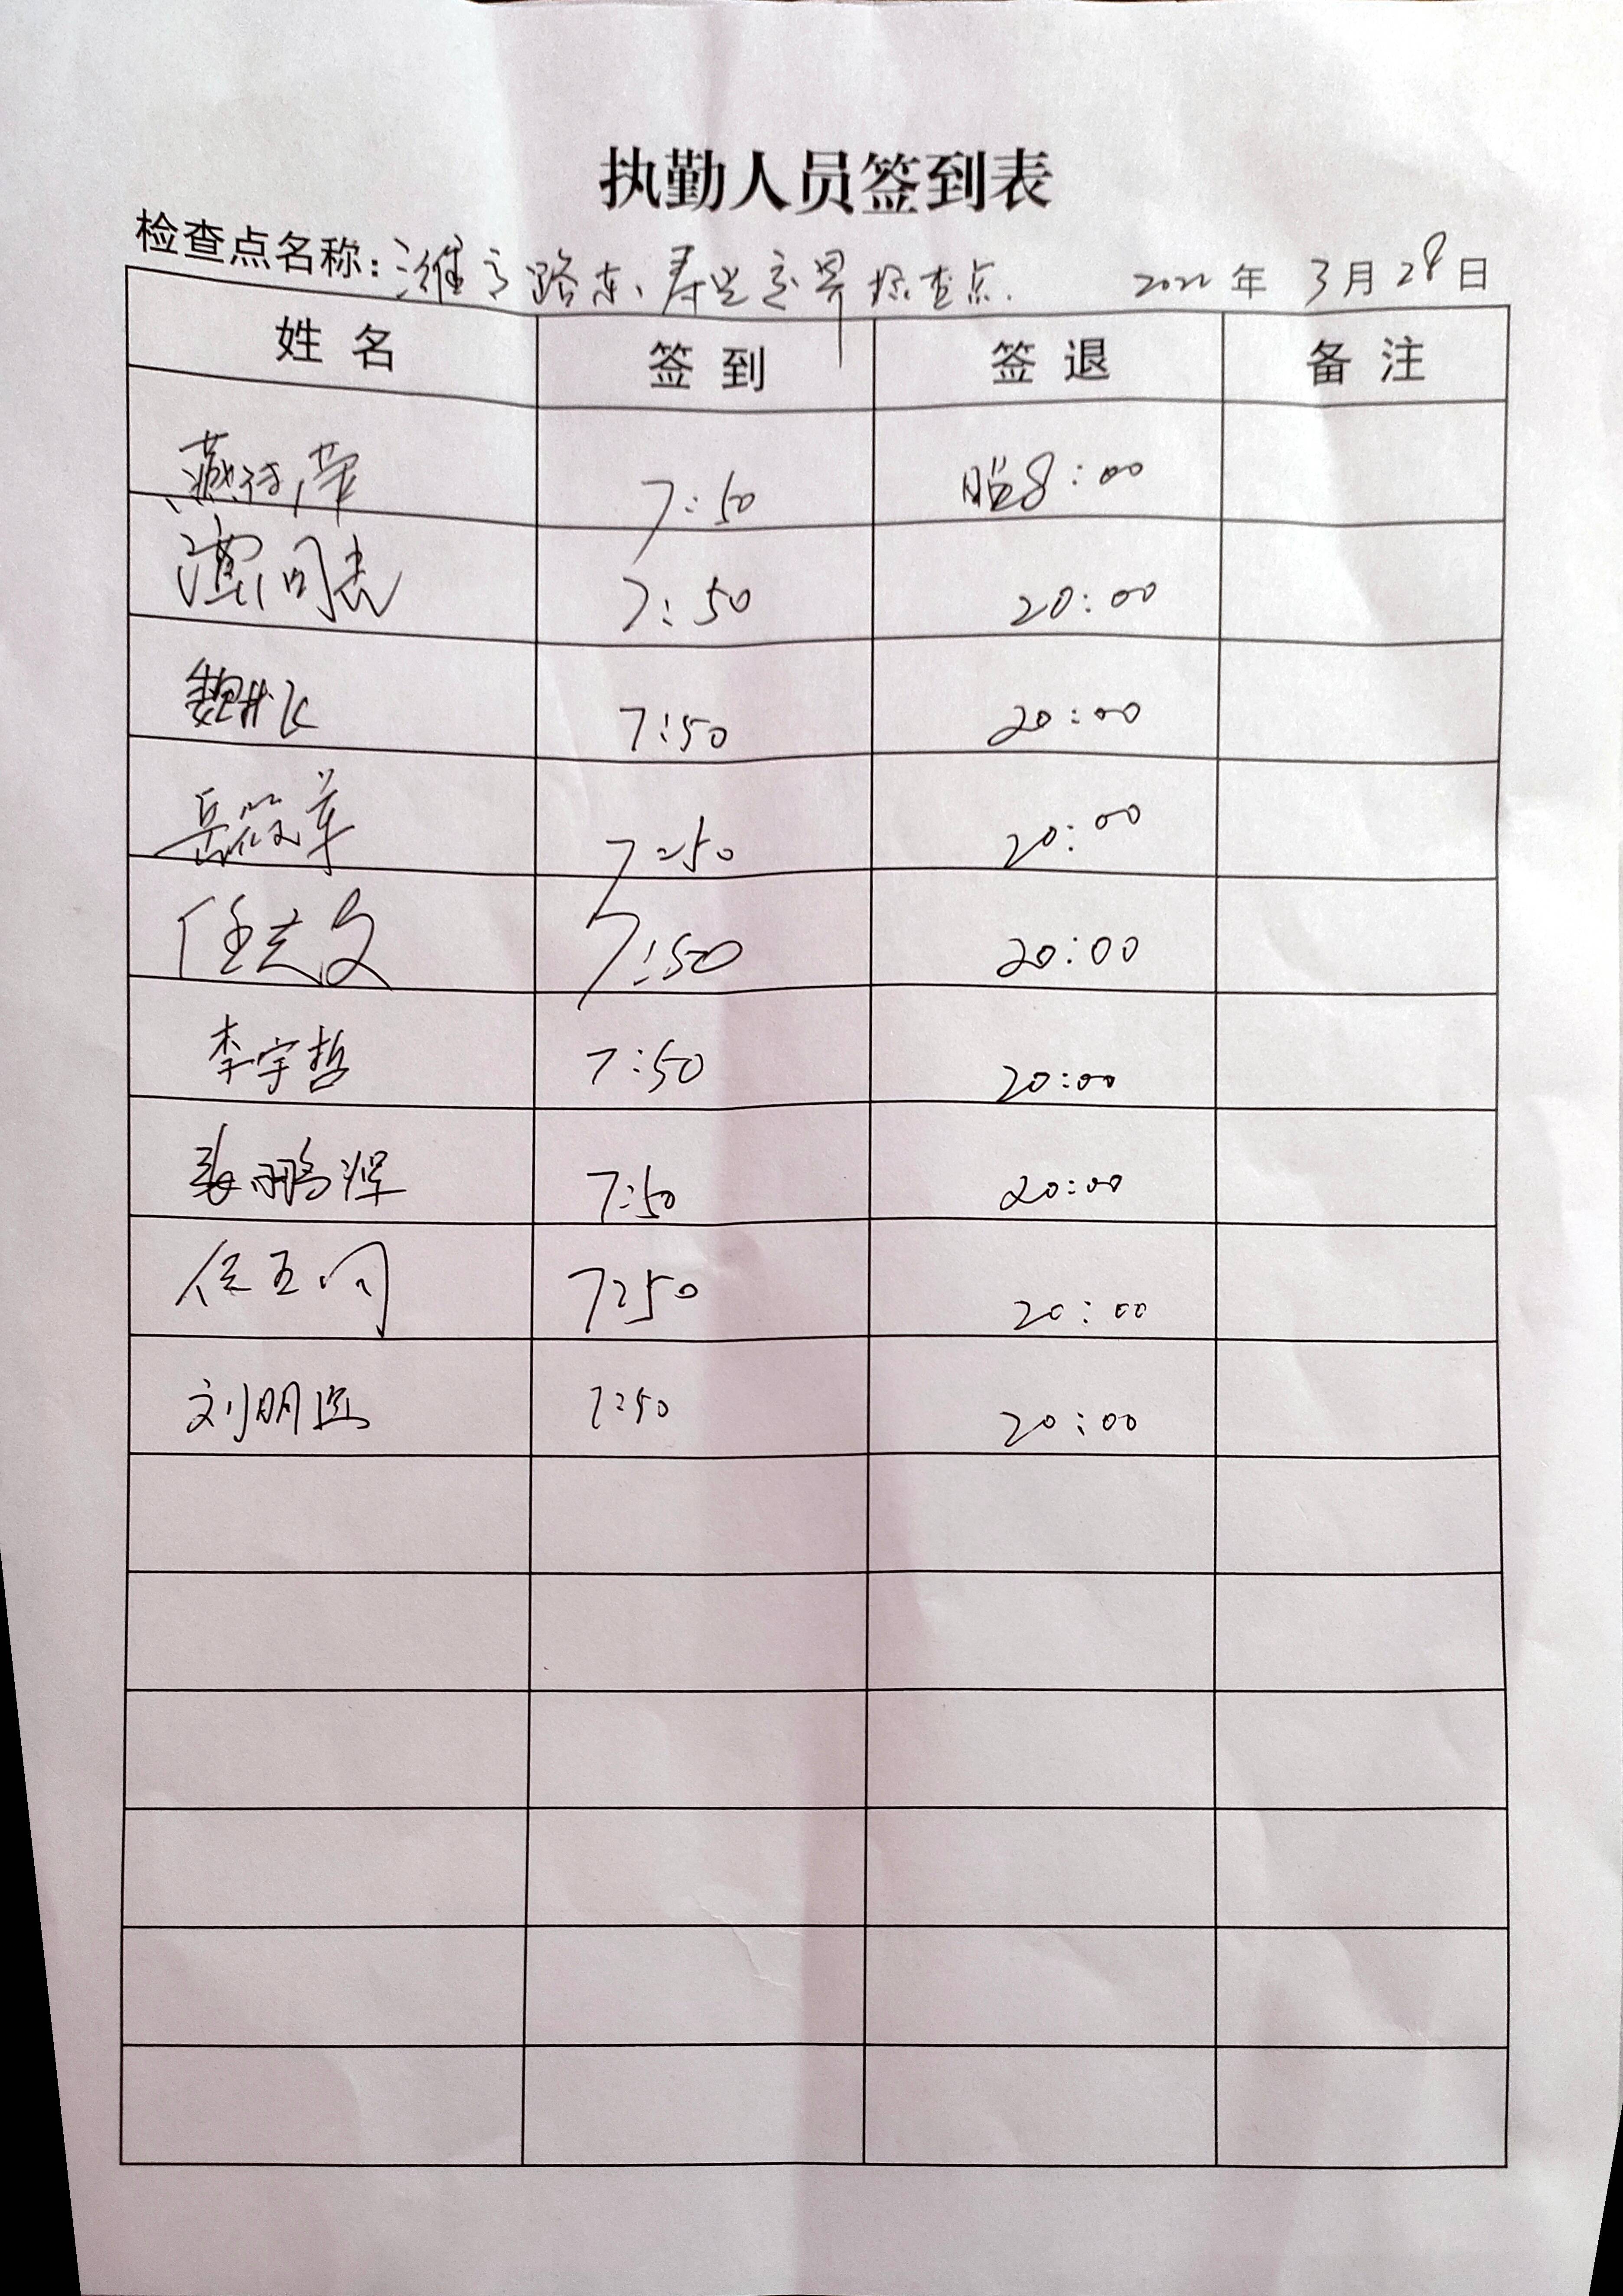 执勤人员签到表
检查点名称：潍高路东、寿光交界检查点. 2022年 3月28日
姓名 签到 签退 备注
7:50 晚8:00
7:50 20:00
魏 7:50 20:00
岳 7:50 20:00
任志文 7:50 20:00
李宇哲 7:50 20:00
鹏辉 7:50 20:00
任玉 7:50 20:00
刘明 7:50 20:00